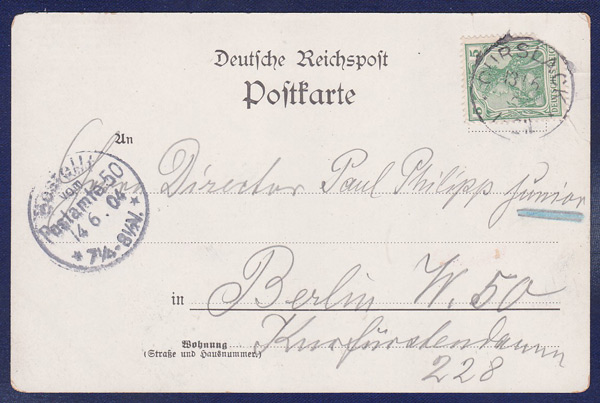 Deutsche Reichspost
Postkarte
CURSLACK
An
Bestellt
vom
Postamte 50
14 6. 04
* 7¼-8½N. *
Herrn Director Paul Philipp junior
in Berlin W. 50
Wohnung
(Straße und Hausnummer)
Kurfürstendamm
228